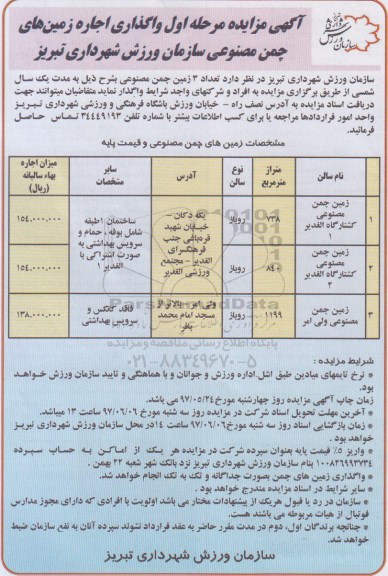 آگهی مزایده مرحله اول واگذاری اجاره زمین‌های
چمن مصنوعی سازمان ورزش شهرداری تبریز
سازمان ورزش شهرداری تبریز در نظر دارد تعداد ۳ زمین چمن مصنوعی بشرح ذیل به مدت یک سال
شمسی از طریق برگزاری مزایده به افراد و شرکتهای واجد شرایط واگذار نماید متقاضیان میتوانند جهت
دریافت اسناد مزایده به آدرس نصف راه - خیابان ورزش باشگاه فرهنگی و ورزشی شهرداری تبریز
واحد امور قراردادها مراجعه یا برای کسب اطلاعات بیشتر با شماره تلفن ۳۴۴۴۹۱۹۳ تماس حاصل
فرمائید.
مشخصات زمین های چمن مصنوعی و قیمت پایه
نام سالن متراژ مترمربع نوع سالن آدرس سایر مشخصات میزان اجاره بهاء سالیانه (ریال)
۱ زمین چمن مصنوعی کشتارگاه الغدیر ۱ ۷۳۸ روباز یکه دکان - خیابان شهید قره‌باغی جنب فرهنگسرای الغدیر - مجتمع ورزشی الغدیر ساختمان ۱طبقه شامل بوفه ، حمام و سرویس بهداشتی به صورت اشتراکی با الغدیر ۱ ۱۵۴.۰۰۰.۰۰۰
۲ زمین چمن مصنوعی کشتارگاه الغدیر ۲ ۸۴۰ روباز ۱۵۴.۰۰۰.۰۰۰
۳ زمین چمن مصنوعی ولی امر ۱۱۹۹ روباز ولی امر - بالاتر از مسجد امام محمد باقر فاقد کمکس و سرویس بهداشتی ۱۳۸.۰۰۰.۰۰۰
ParsNamadData
پایگاه اطلاع رسانی مناقصه و مزایده
۰۲۱-۸۸۳۴۹۶۷۰-۵
شرایط مزایده :
* نرخ تایمهای میادین طبق اشل اداره ورزش و جوانان و با هماهنگی و تایید سازمان ورزش خواهد
بود.
زمان چاپ آگهی مزایده روز چهارشنبه مورخ ۹۷/۰۵/۲۴ می باشد.
* آخرین مهلت تحویل اسناد شرکت در مزایده روز سه شنبه مورخ ۹۷/۰۶/۰۶ ساعت ۱۳ میباشد.
* زمان بازگشایی اسناد روز سه شنبه مورخ ۹۷/۰۶/۰۶ ساعت ۱۴ در محل سازمان ورزش شهرداری تبریز
خواهد بود .
* واریز ۵٪ قیمت پایه بعنوان سپرده شرکت در مزایده هر یک از اماکن به حساب سپرده
۱۰۰۸۲۶۹۹۳۷۳۴ بنام سازمان ورزش شهرداری تبریز نزد بانک شهر شعبه ۲۲ بهمن .
* واگذاری زمین های چمن بصورت جداگانه و تک به تک انجام خواهد شد.
* سایر شرایط در اسناد مزایده مندرج خواهد بود .
* سازمان در رد یا قبول هریک از پیشنهادات مختار می باشد اولویت با افرادی که دارای مجوز مدارس
فوتبال از هیات مربوطه می باشند هست.
* چنانچه برندگان اول، دوم در مدت مقرر حاضر به عقد قرارداد نشوند سپرده آنان به نفع سازمان ضبط
خواهد شد.
سازمان ورزش شهرداری تبریز